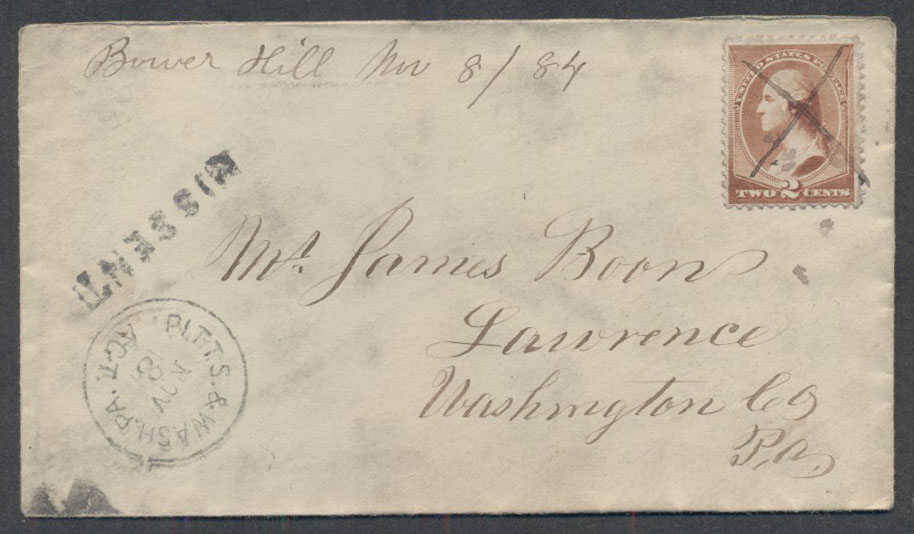 Bower Hill Nov 8/84
UNITED STATES POSTAGE
TWO 2 CENTS
MISSENT
Mr. James Boon
Lawrence
Washington Co
Pa
PITTS. & WASH. PA. AGT.
NOV
8